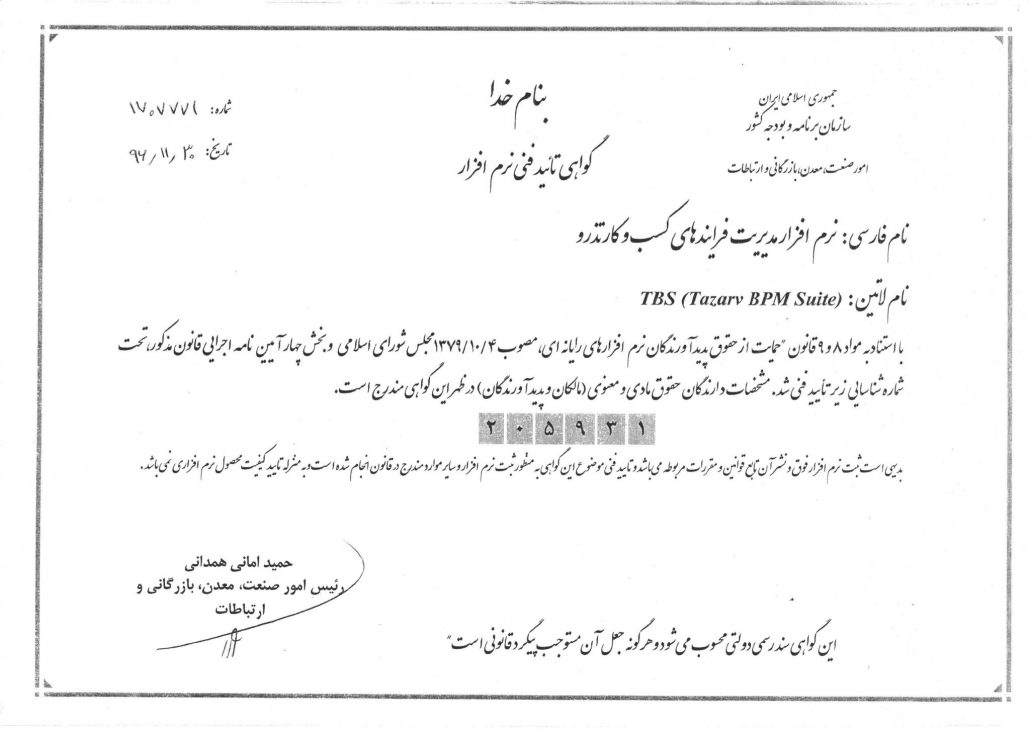 جمهوری اسلامی ایران
سازمان برنامه و بودجه کشور
امور صنعت، معدن، بازرگانی و ارتباطات
بنام خدا
گواهی تائید فنی نرم افزار
شماره: ۱۷۰۷۷۷۱
تاریخ: ۹۶/۱۱/۳۰
نام فارسی: نرم افزار مدیریت فرایندهای کسب و کار تذرو
نام لاتین: TBS (Tazarv BPM Suite)
با استناد به مواد ۸ و ۹ قانون "حمایت از حقوق پدیدآورندگان نرم افزارهای رایانه ای، مصوب ۱۳۷۹/۱۰/۴ مجلس شورای اسلامی و بخش چهار آیین نامه اجرایی قانون مذکور، تحت
شماره شناسایی زیر تأیید فنی شد. مشخصات دارندگان حقوق مادی و معنوی (مالکان و پدیدآورندگان) در ظهر این گواهی مندرج است.
۲۰۵۹۳۱
بدیهی است ثبت نرم افزار فوق و نشر آن تابع قوانین و مقررات مربوطه می باشد و تایید فنی موضوع این گواهی به منظور ثبت نرم افزار و سایر موارد مندرج در قانون انجام شده است و به منزله تایید کیفیت محصول نرم افزاری نمی باشد.
حمید امانی همدانی
رئیس امور صنعت، معدن، بازرگانی و
ارتباطات
این گواهی سند رسمی دولتی محسوب می شود و هرگونه جعل آن مستوجب پیگرد قانونی است"